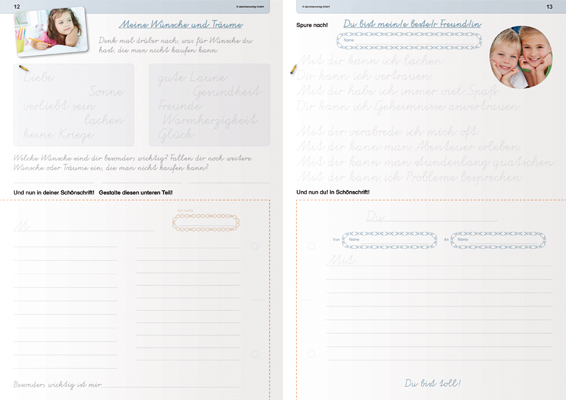 12
© sternchenverlag GmbH
Meine Wünsche und Träume
Denk mal drüber nach, was für Wünsche du
hast, die man nicht kaufen kann.
Liebe
Sonne
verliebt sein
lachen
keine Kriege
gute Laune
Gesundheit
Freunde
Warmherzigkeit
Glück
Welche Wünsche sind dir besonders wichtig? Fallen dir noch weitere
Wünsche oder Träume ein, die man nicht kaufen kann?
Und nun in deiner Schönschrift! Gestalte diesen unteren Teil!
Besonders wichtig ist mir
© sternchenverlag GmbH
13
Spure nach!
Du bist mein/e beste/r Freund/in
Name
Mit dir kann ich lachen.
Dir kann ich vertrauen.
Mit dir habe ich immer viel Spaß.
Dir kann ich Geheimnisse anvertrauen.
Mit dir verabrede ich mich oft.
Mit dir kann man Abenteuer erleben.
Mit dir kann man stundenlang quatschen.
Mit dir kann ich Probleme besprechen.
Und nun du! In Schönschrift!
Du
Von
Name
an
Name
Mit
Du bist toll!